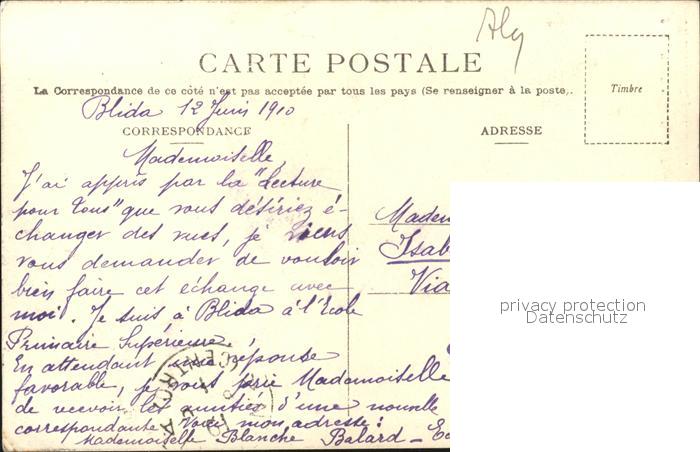 Alg
CARTE POSTALE
La Correspondance de ce côté n'est pas acceptée par tous les pays (Se renseigner à la poste).
Timbre
Blida 12 Juin 1910
CORRESPONDANCE
ADRESSE
Mademoiselle,
J'ai appris par la "Lecture
pour Tous" que vous désiriez é-
changer des vues, je viens
vous demander de vouloir
bien faire cet échange avec
moi. Je suis à Blida à l'Ecole
Primaire Supérieure.
En attendant une réponse
favorable, je vous prie Mademoiselle
de recevoir les amitiés d'une nouvelle
correspondante Voici mon adresse:
Mademoiselle Blanche Balard - Ec
Madem
Isab
Via
privacy protection
Datenschutz